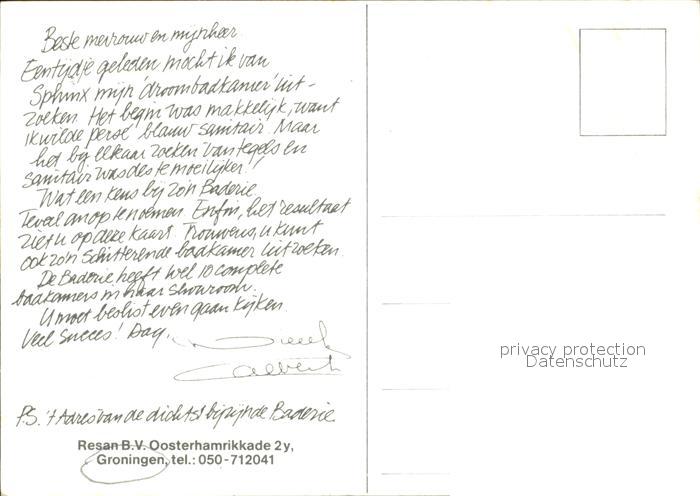 Beste mevrouw en mijnheer
Een tijdje geleden mocht ik van
Sphinx mijn 'droombadkamer' uit-
zoeken. Het begin was makkelijk, want
ik wilde persé blauw sanitair. Maar
het bij elkaar zoeken van tegels en
sanitair was des te moeilijker!
Wat een keus bij zo'n Baderie
Teveel om op te noemen. Enfin, het resultaat
ziet u op deze kaart. Trouwens, u kunt
ook zo'n schitterende badkamer uitzoeken.
De Baderie heeft wel 10 complete
badkamers in haar showroom.
U moet beslist even gaan kijken.
Veel succes! Dag,
P.S. 't Adres van de dichtst bijzijnde Baderie
Resan B.V. Oosterhamrikkade 2y,
Groningen, tel.: 050-712041
privacy protection
Datenschutz